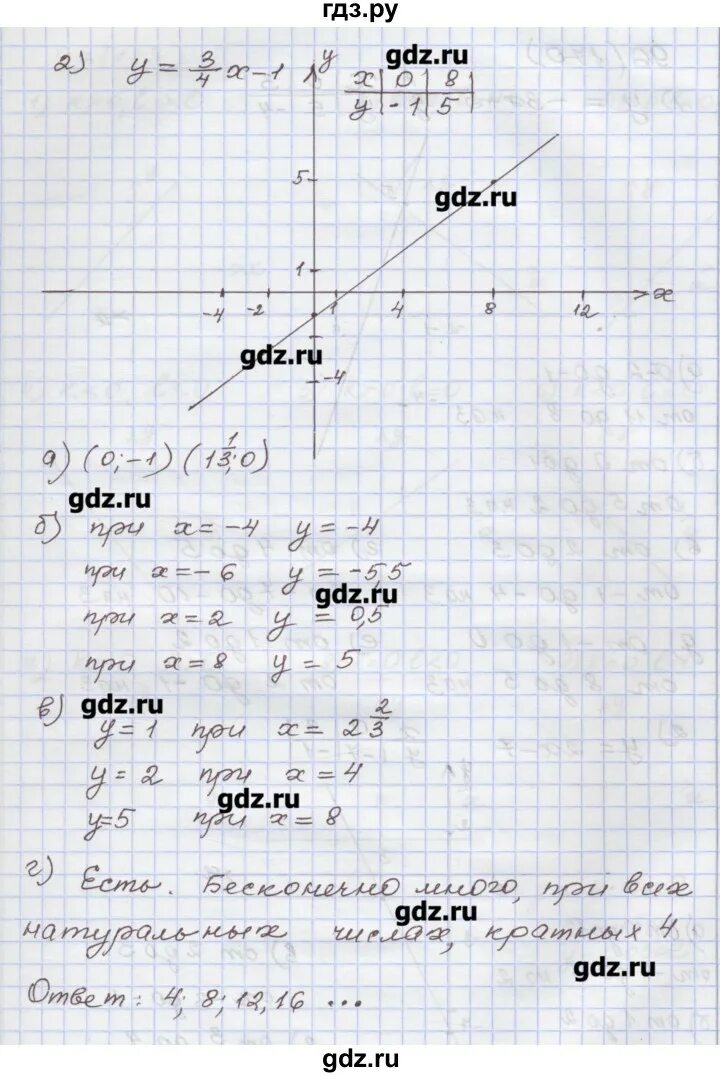 гдз.ру
gdz.ru
2) y = 3/4 x - 1
y
x | 0 | 8
y | -1 | 5
5
gdz.ru
1
-4 -2 1 4 8 12 x
gdz.ru
-4
а) (0; -1) (1 1/3; 0)
gdz.ru
б) при x = -4 y = -4
при x = -6 y = -5,5
gdz.ru
при x = 2 y = 0,5
при x = 8 y = 5
в) gdz.ru
y = 1 при x = 2 2/3
y = 2 при x = 4
gdz.ru
y = 5 при x = 8
г) Есть. Бесконечно много, при всех
gdz.ru
натуральных числах, кратных 4
gdz.ru
Ответ: 4; 8; 12, 16 ...
gdz.ru